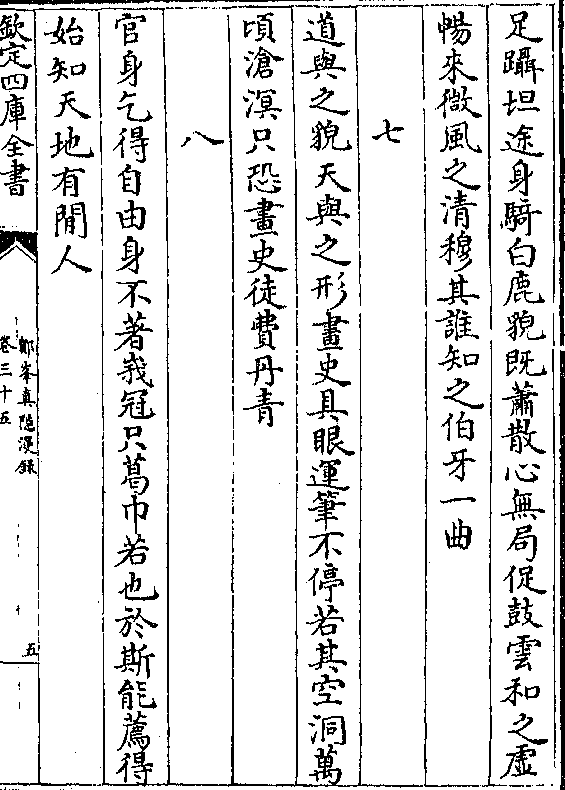 足躡坦途身騎白鹿貌既蕭散心無局促鼓雲和之虛
暢來微風之清穆其誰知之伯牙一曲
七
道與之貌天與之形畫史具眼運筆不停若其空洞萬
頃滄溟只恐畫史徒費丹青
八
官身乞得自由身不著峩冠只葛巾若也於斯能薦得
始知天地有閒人
欽定四庫全書
鄮峯真隱漫錄
卷三十五
五